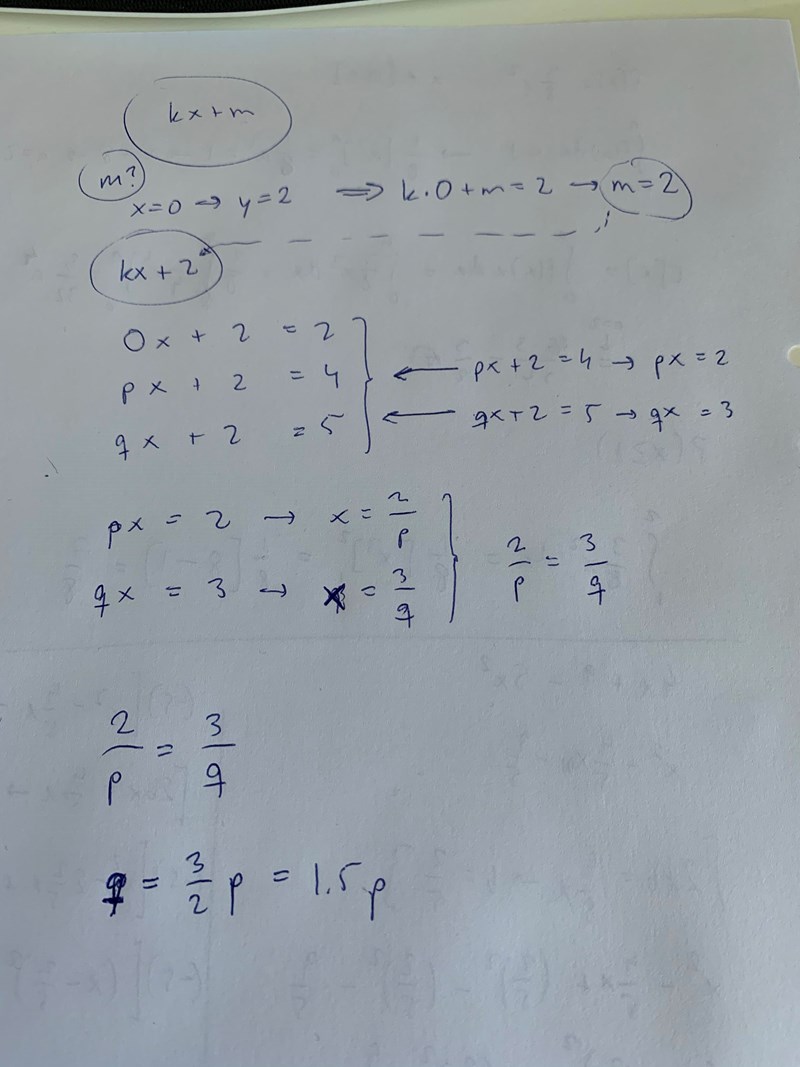 kx+m
m?
x=0 → y=2 ⟹ k·0+m=2 → m=2
kx+2
0x + 2 = 2
px + 2 = 4 ← px+2=4 → px=2
qx + 2 = 5 ← qx+2=5 → qx=3
px = 2 → x = 2/p
qx = 3 → x = 3/q
2/p = 3/q
2/p = 3/q
q = 3/2 p = 1.5p